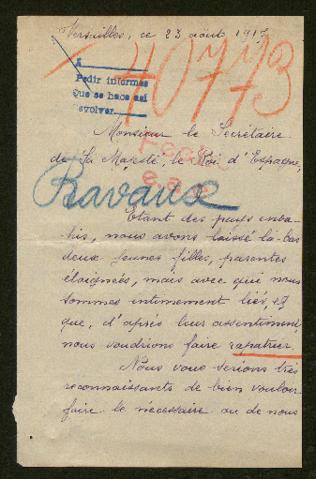 Versailles, ce 23 août 1917
40773
A
Pedir informes
Que se hace así
devolver
Monsieur le Secrétaire
de Sa Majesté, le Roi d'Espagne,
Ravaux
Etant des pays enva-
his, nous avons laissé là-bas
deux jeunes filles, parentes
éloignées, mais avec qui nous
sommes intimement liés, et
que, d'après leur assentiment,
nous voudrions faire rapatrier.
Nous vous serions très
reconnaissants de bien vouloir
faire le nécessaire ou de nous